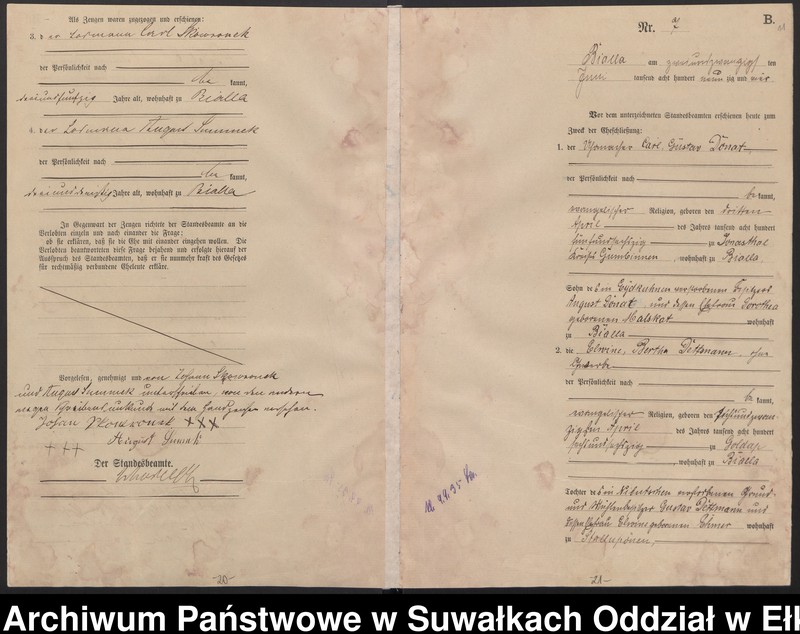 Als Zeugen waren zugezogen und erschienen:
3. der Losmann Carl Skowronek
der Persönlichkeit nach
be kannt,
dreiundfünfzig Jahre alt, wohnhaft zu Bialla
4. der Losmann August
der Persönlichkeit nach
be kannt,
dreiunddreißig Jahre alt, wohnhaft zu Bialla
In Gegenwart der Zeugen richtete der Standesbeamte an die
Verlobten einzeln und nach einander die Frage:
ob sie erklären, daß sie die Ehe mit einander eingehen wollen. Die
Verlobten beantworteten diese Frage bejahend und erfolgte hierauf der
Ausspruch des Standesbeamten, daß er sie nunmehr kraft des Gesetzes
für rechtmäßig verbundene Eheleute erkläre.
Vorgelesen, genehmigt und von Johann Skowronek
und August unterschrieben, von den anderen
wegen Schreibensunkunde mit dem Handzeichen versehen.
Johan Skowronek +++
+++ August
Der Standesbeamte.
-20-
B.
Nr. 7
Bialla am zweiundzwanzigsten
Juni tausend acht hundert neunzig und vier
Vor dem unterzeichneten Standesbeamten erschienen heute zum
Zweck der Eheschließung:
1. der Carl, Gustav Donat
der Persönlichkeit nach
be kannt,
evangelischer Religion, geboren den dritten
April des Jahres tausend acht hundert
fünfundsechzig zu Jonasthal
Kreises Gumbinnen, wohnhaft zu Bialla
Sohn des in Eydkuhnen verstorbenen Besitzers
August Donat und dessen Ehefrau Dorothea
geborenen Malskat wohnhaft
zu Bialla
2. die Elwine, Bertha Dittmann, ohne
Gewerbe
der Persönlichkeit nach
be kannt,
evangelischer Religion, geboren den sechsundzwan-
zigsten April des Jahres tausend acht hundert
sechsundsechzig zu Goldap
, wohnhaft zu Bialla
Tochter des in verstorbenen Grund-
und Mühlenbesitzer Gustav Dittmann und
dessen Ehefrau Elwine geborenen wohnhaft
zu Stallupönen,
-21-
Archiwum Państwowe w Suwałkach Oddział w Ełk